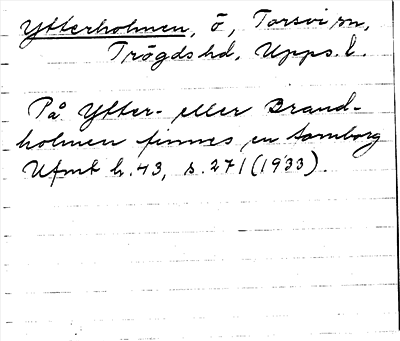 Ytterholmen, ö, Torsvi sn,
Trögds hd, Upps. l.
På Ytter- eller Brand-
holmen finnes en borg
Ufmt h. 43, s. 271 (1933).